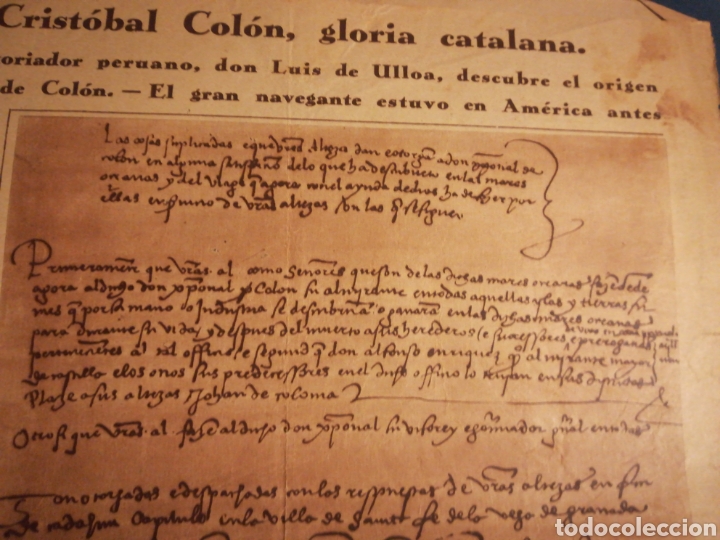 Cristóbal Colón, gloria catalana.
oriador peruano, don Luis de Ulloa, descubre el origen
de Colón. — El gran navegante estuvo en América antes
Las cosas suplicadas e que vras Altezas dan e otorgan a don xpoual de
colon en alguna satisfaçion de lo que ha descubierto en las mares
oceanas y del viage que agora con el ayuda de dios ha de fazer por
ellas en seruiçio de vras altezas son las que se siguen
Primeramente que vras al como Senores que son de las dichas mares oceanas fazen dende
agora al dicho don xpoual Colon su almirante en todas aquellas yslas y tierras firmes
que por su mano o industria se descubriran o ganaran en las dichas mares oceanas
para durante su vida y despues del muerto a sus herederos e successores
pertenescientes al tal officio e segund que don alfonso enriquez almirante mayor
de castilla e los otros sus predecessores en el dicho officio lo tenian en sus districtos
Plaze a sus altezas Johan de coloma
Otrosi que vras al fazen al dicho don xpoual su visorey e gouernador general en todas
Son otorgadas e despachadas con las respuestas de vras altezas en fin
de cada hun capitulo en la villa de santa fe de la vega de granada
todocoleccion